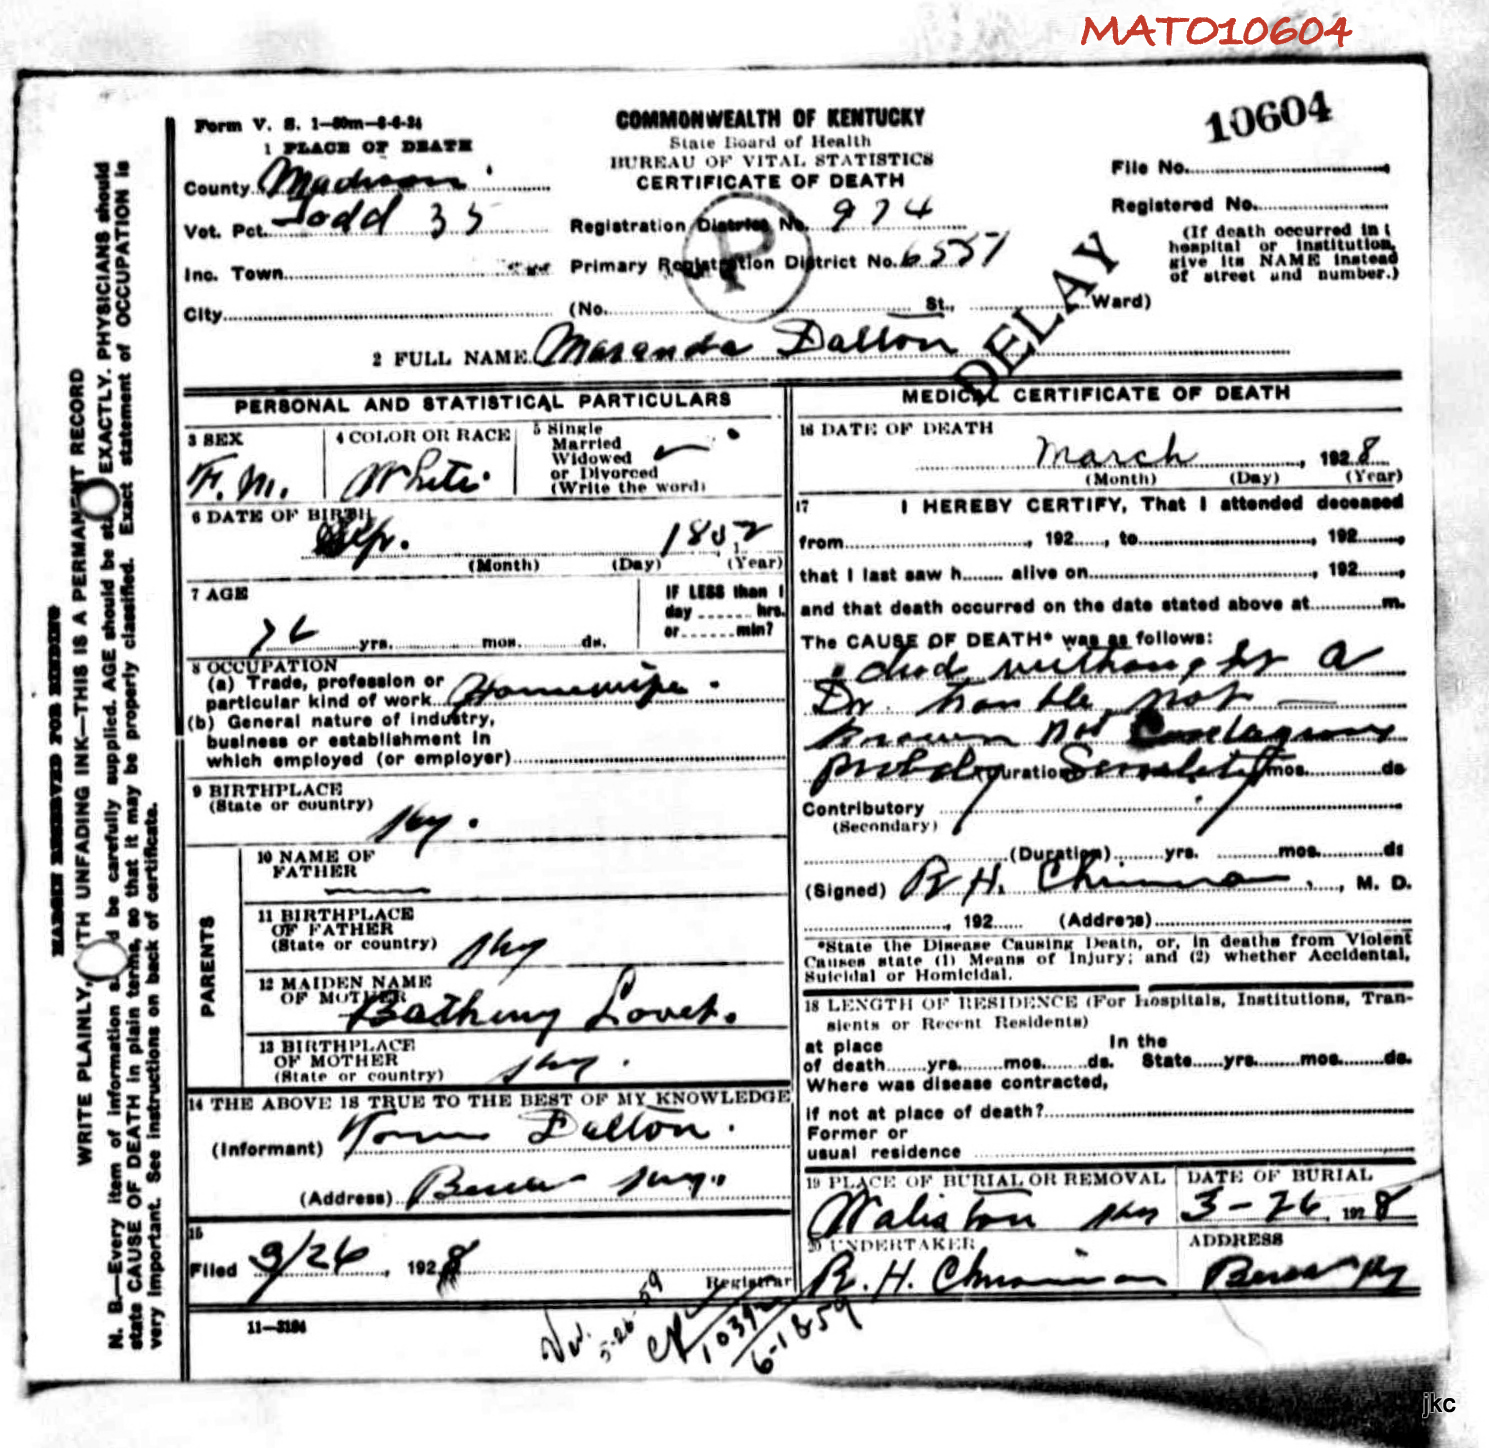 MATO10604
10604
Form V. S. 1—50m—6-6-24
COMMONWEALTH OF KENTUCKY
State Board of Health
BUREAU OF VITAL STATISTICS
CERTIFICATE OF DEATH
1 PLACE OF DEATH
County Madison
Vot. Pct. Todd 35
Inc. Town
City
File No.
Registered No.
Registration District No. 974
Primary Registration District No. 6557
(No. St., Ward)
(If death occurred in
hospital or institution,
give its NAME instead
of street and number.)
P
DELAY
2 FULL NAME Maranda Dalton
PERSONAL AND STATISTICAL PARTICULARS
3 SEX
F. M.
4 COLOR OR RACE
White
5 Single
Married
Widowed
or Divorced
(Write the word)
6 DATE OF BIRTH
Sep. 1852
(Month) (Day) (Year)
7 AGE
76 yrs. mos. ds.
IF LESS than 1
day hrs.
or min?
8 OCCUPATION
(a) Trade, profession or
particular kind of work Housewife
(b) General nature of industry,
business or establishment in
which employed (or employer)
9 BIRTHPLACE
(State or country)
Ky.
PARENTS
10 NAME OF
FATHER
11 BIRTHPLACE
OF FATHER
(State or country) Ky
12 MAIDEN NAME
OF MOTHER
Batheny Lovet.
13 BIRTHPLACE
OF MOTHER
(State or country) Ky.
14 THE ABOVE IS TRUE TO THE BEST OF MY KNOWLEDGE
(Informant) Dalton.
(Address) Berea Ky.
15
Filed 9/26, 1928
Registrar
11—3184
MEDICAL CERTIFICATE OF DEATH
16 DATE OF DEATH
March, 1928
(Month) (Day) (Year)
17 I HEREBY CERTIFY, That I attended deceased
from, 192, to, 192,
that I last saw h alive on, 192,
and that death occurred on the date stated above at m.
The CAUSE OF DEATH* was as follows:
died without a
Dr. trouble not
known not Contagious
probaly Senility
(Duration) mos. ds
Contributory
(Secondary)
(Duration) yrs. mos. ds
(Signed) R. H. Chrisman, M. D.
, 192 (Address)
*State the Disease Causing Death, or, in deaths from Violent
Causes state (1) Means of Injury; and (2) whether Accidental,
Suicidal or Homicidal.
18 LENGTH OF RESIDENCE (For Hospitals, Institutions, Tran-
sients or Recent Residents)
at place In the
of death yrs. mos. ds. State yrs. mos. ds.
Where was disease contracted,
if not at place of death?
Former or
usual residence
19 PLACE OF BURIAL OR REMOVAL
Waliston Ky
DATE OF BURIAL
3-26, 1928
20 UNDERTAKER
R. H. Chrisman
ADDRESS
Berea Ky
5-26-59
6-18-59
MARGIN RESERVED FOR BINDING
WRITE PLAINLY, WITH UNFADING INK—THIS IS A PERMANENT RECORD
N. B.—Every item of information should be carefully supplied. AGE should be stated EXACTLY. PHYSICIANS should
state CAUSE OF DEATH in plain terms, so that it may be properly classified. Exact statement of OCCUPATION is
very important. See instructions on back of certificate.
jkc